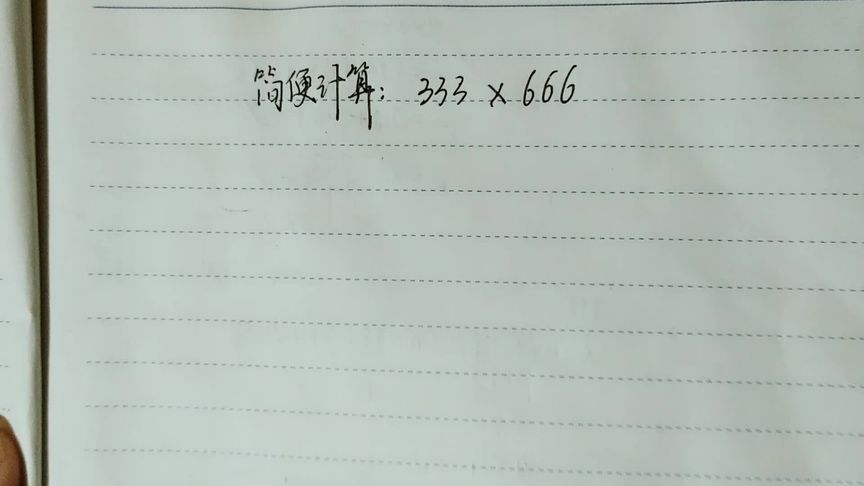 简便计算: 333 × 666